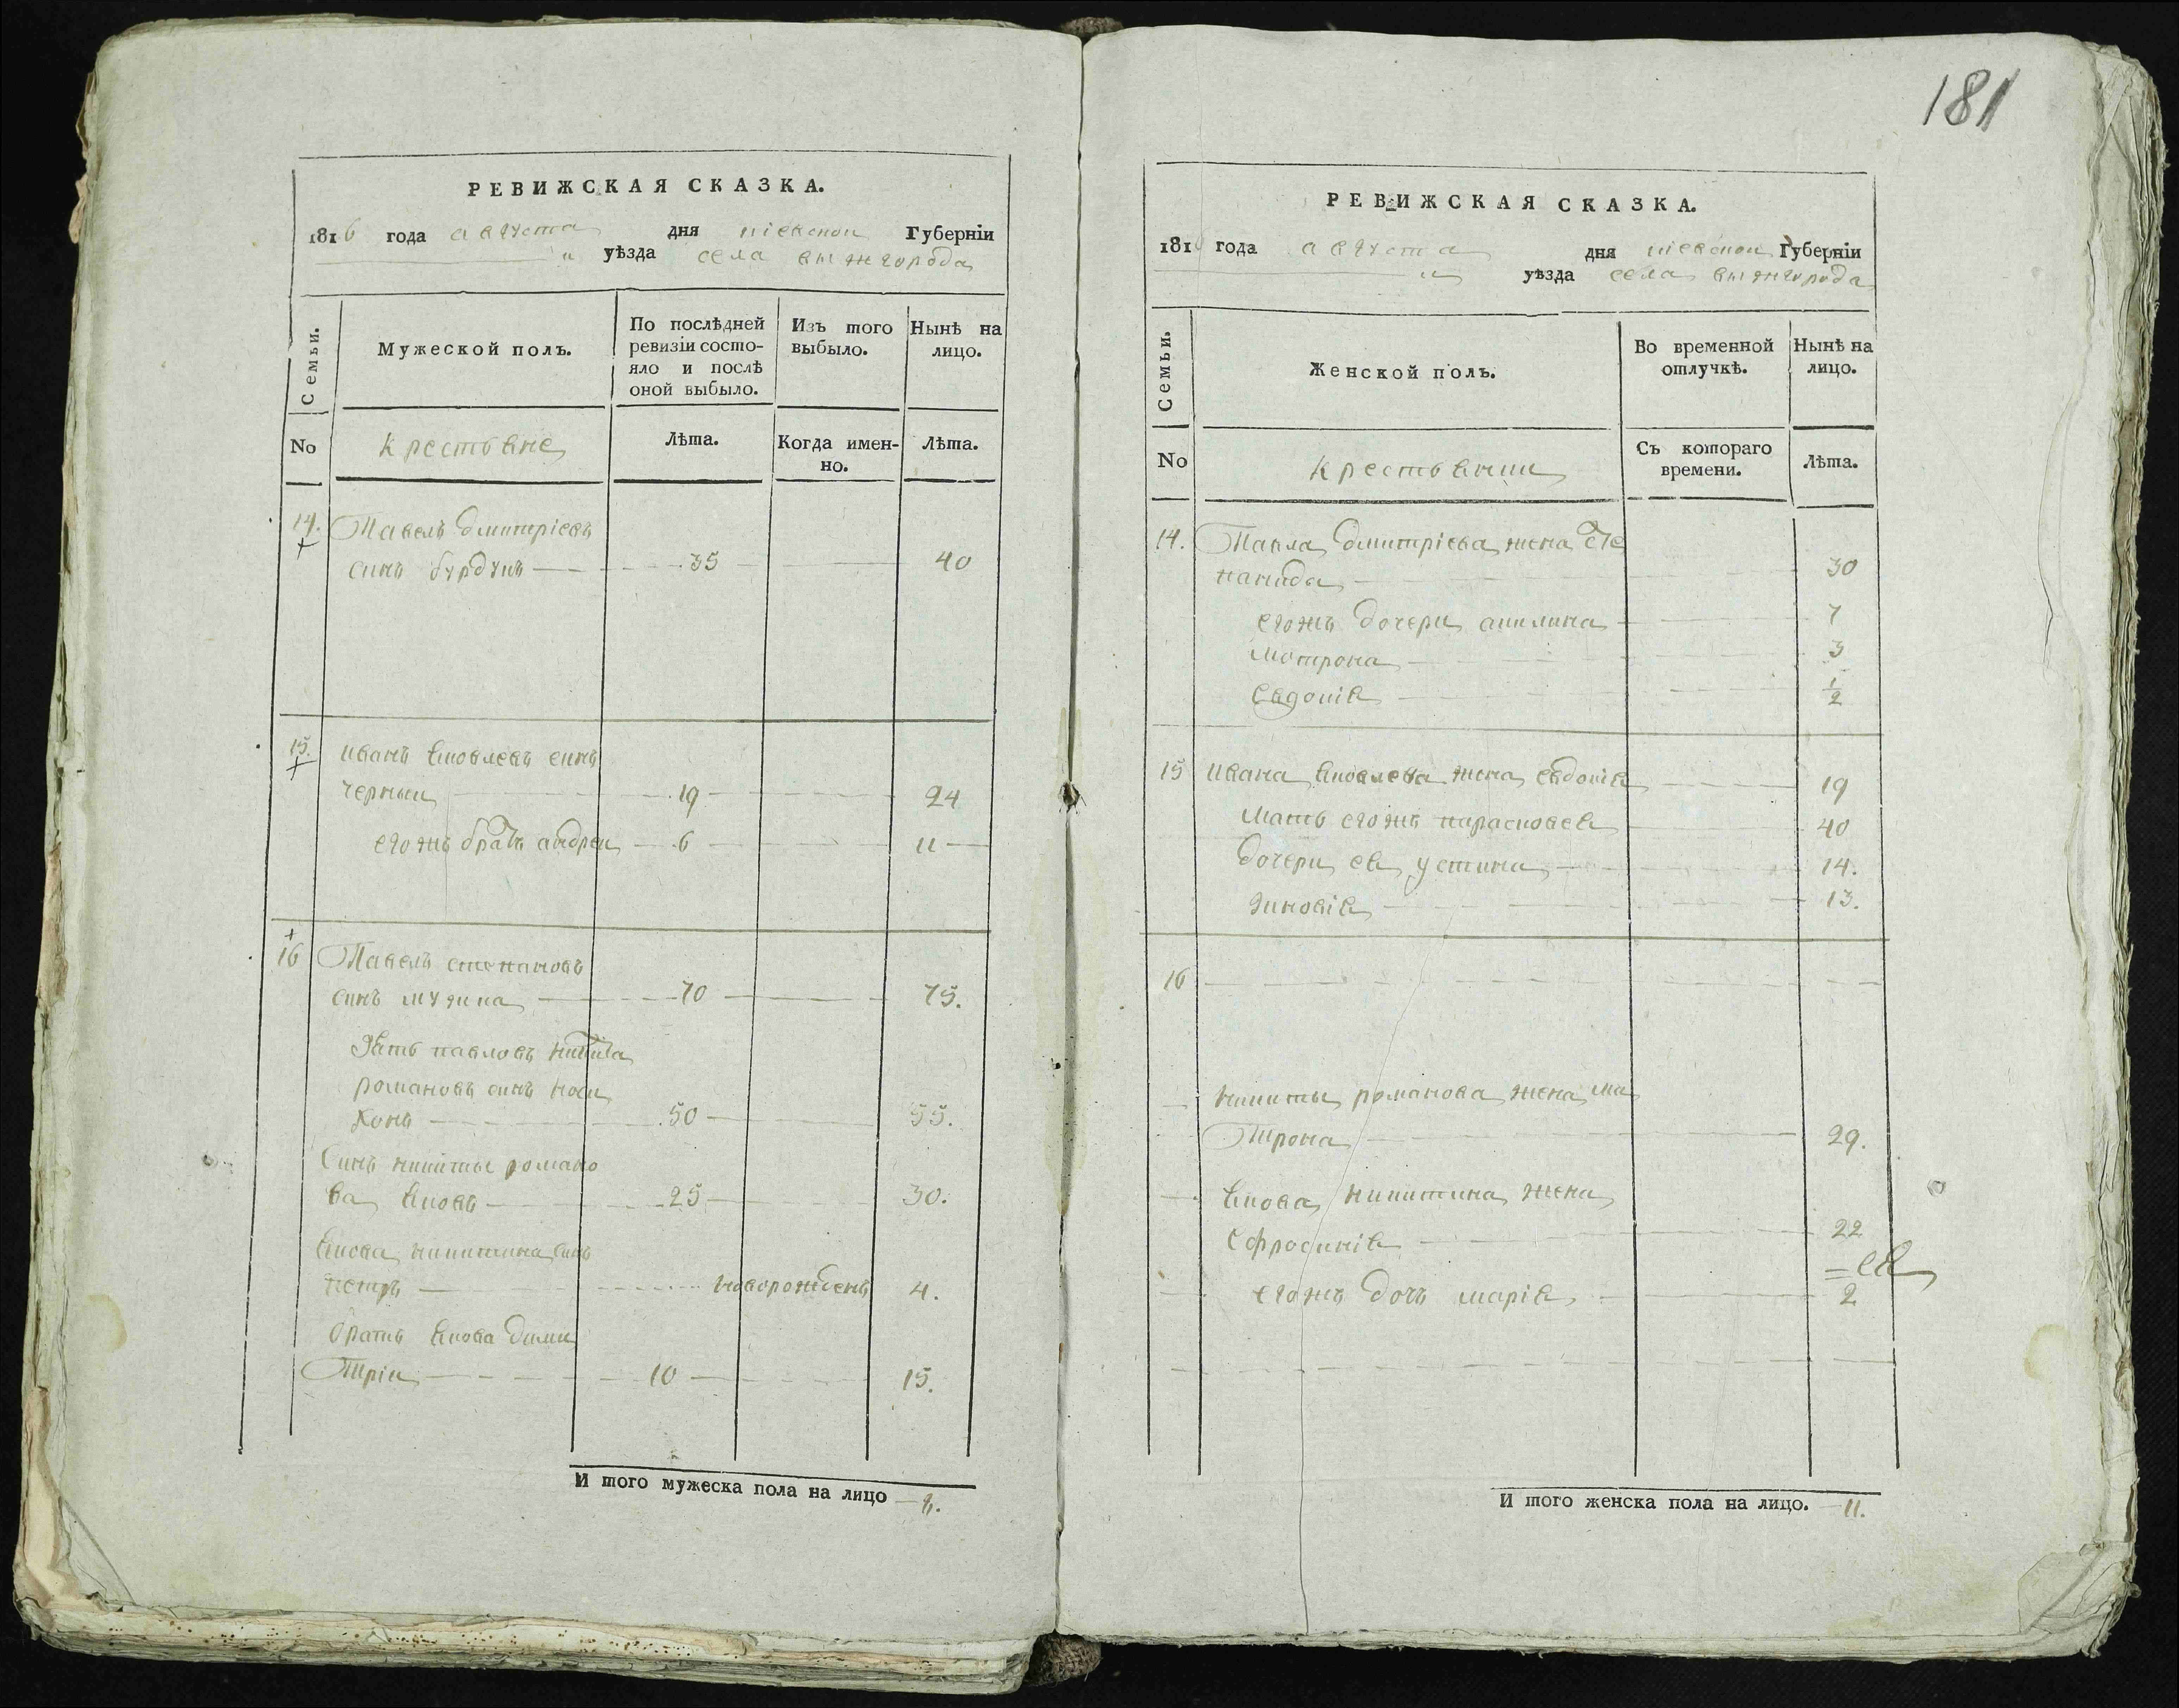 181
РЕВИЖСКАЯ СКАЗКА.
1816 года августа дня кіевской Губерніи
" уѣзда села вышгорода
Семьи.
Мужеской полъ.
По послѣдней ревизіи состо-
яло и послѣ
оной выбыло.
Изъ того выбыло.
Нынѣ на лицо.
No
крестьяне
Лѣта.
Когда имен-
но.
Лѣта.
14. Павелъ дмитріевъ
синъ бурдунъ 35 40
15. иванъ яковлевъ синъ
черныи 19 24
егожъ братъ андреи 6 11
16 Павелъ степановъ
синъ музика 70 75.
Зять павловъ никита
романовъ синъ
50 55.
Синъ никиты романо
ва яковъ 25 30.
якова никитина синъ
петръ новорожденъ 4.
братъ якова дими
тріи 10 15.
И того мужеска пола на лицо 8.
РЕВИЖСКАЯ СКАЗКА.
1816 года августа дня кіевской Губерніи
уѣзда села вышгорода
Семьи.
Женской полъ.
Во временной
отлучкѣ.
Нынѣ на
лицо.
No
крестьянки
Съ котораго
времени.
Лѣта.
14. Павла дмитріева жена сте
панида 30
егожъ дочери акилина 7
мотрона 3
евдокія 1/2
15 ивана яковлева жена евдокія 19
мать егожъ парасковея 40
дочери ея устина 14.
зиновія 13.
16
никиты романова жена ма
трона 29.
якова никитина жена
ефросинія 22
егожъ дочь марія 2
И того женска пола на лицо. 11.